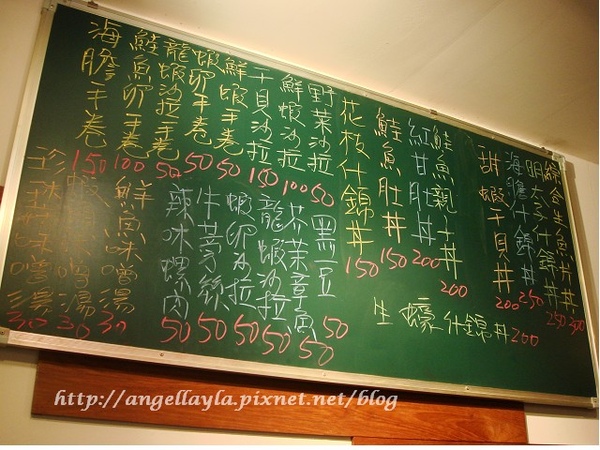 綜合生魚片丼 300
明太子什錦丼 250
海膽什錦丼 250
甜蝦干貝丼 200
鮭魚親子丼 200
紅甘肚丼 200
鮭魚肚丼 150
花枝什錦丼 150
野菜沙拉 50
鮮蝦沙拉 100
干貝沙拉 150
鮮蝦手卷 50
蝦卵手卷 50
龍蝦沙拉手卷 50
鮭魚卵手卷 100
海膽手卷 150
生蠔什錦丼 200
黑豆 50
芥茉章魚 50
龍蝦沙拉 50
蝦卵沙拉 50
牛蒡絲 50
辣味螺肉 50
鮮魚味噌湯 30
蝦味噌湯 30
味噌湯 30
http://angellayla.pixnet.net/blog